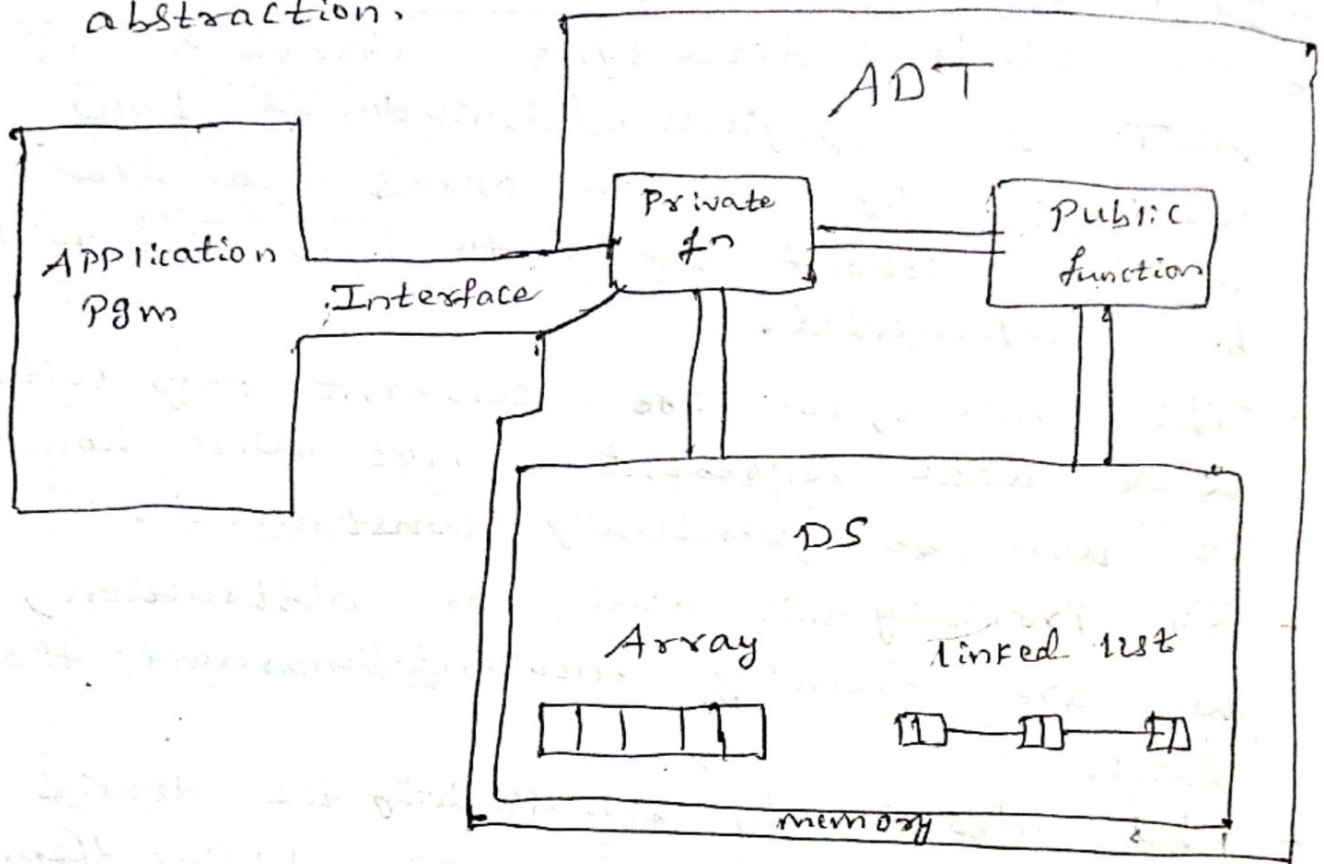 abstraction.
ADT
Application
Pgm
Interface
Private
fn
Public
function
DS
Array
linked list
memory